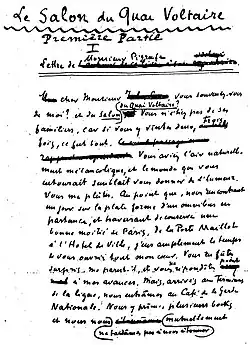 Le Salon du Quai Voltaire
Première Partie
I
Lettre de Monsieur
cher Monsieur vous souvenez-vous
de moi? et du Salon du Quai Voltaire? Vous n'étiez pas de ses
familiers, car si vous y vîntes deux,
fois, ce fut tout.
Vous aviez l'air naturelle-
ment mélancolique, et le monde qui vous
entourait semblait vous donner de l'humeur.
Vous me plûtes. Au point que, nous rencontrant
un jour sur la plate forme d'un omnibus en
partance, et traversant de conserve une
bonne moitié de Paris, de la Porte Maillot
à l'Hôtel de Ville, j'eus amplement le temps
de vous ouvrir tout mon cœur. Vous en fûtes
surpris, me parut-il, et vous répondîtes
à mes avances. Mais, arrivés au Terminus
de la ligne, nous entrâmes au Café de la Garde
Nationale. Nous y prîmes plusieurs bocks
et nous mutuellement